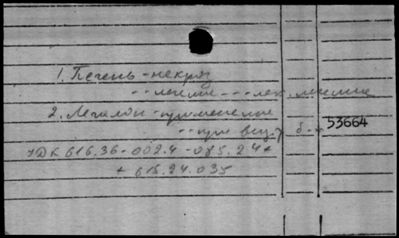 1. Печень - некроз
- - лечение - - - лек. лечение
2. Легалон - применение
- - при вец. ? б - -
53664
УДК 616.36-002.4-085.24+
+ 615.24.035